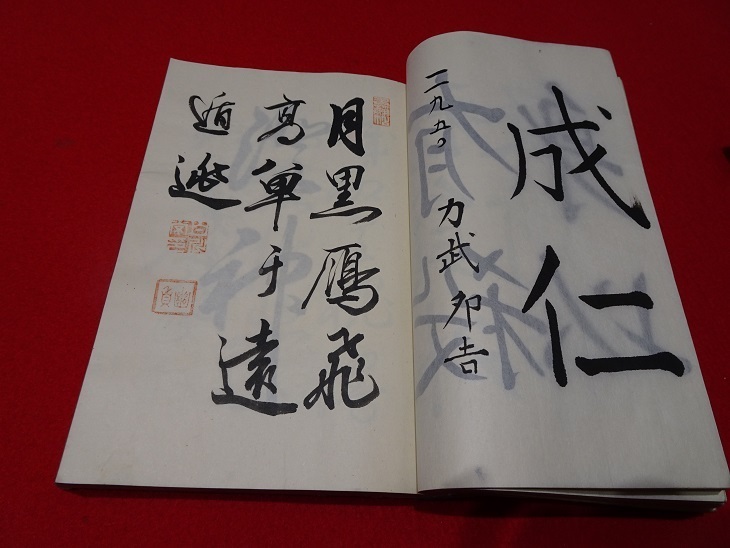 成仁
一二九五。
力武卯吉
月黒鴈飛
高単于遠
遁逃